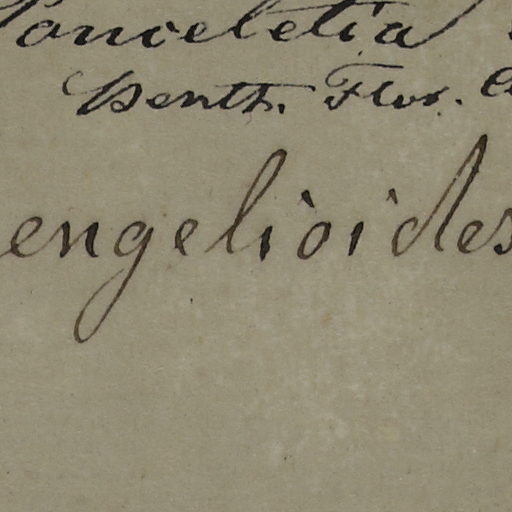 Ponceletia
Benth. Flor.
engelioides